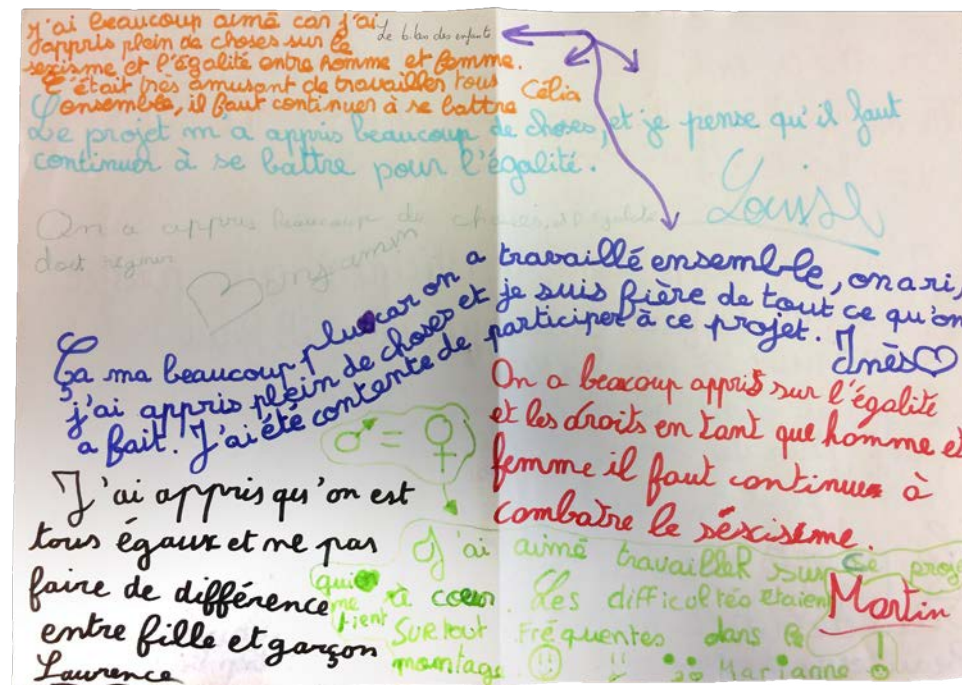 J'ai beaucoup aimé car j'ai
appris plein de choses sur le
sexisme et l'égalité entre homme et femme.
C'était très amusant de travailler tous
ensemble, il faut continuer à se battre
Célia
Le bilan des enfants
Le projet m'a appris beaucoup de choses, et je pense qu'il faut
continuer à se battre pour l'égalité.
Louise
On a appris beaucoup de choses, et l'égalité
doit régner
Benjamin
Ça ma beaucoup plu car on a travaillé ensemble, on a ri,
j'ai appris plein de choses et je suis fière de tout ce qu'on
a fait. J'ai été contente de participer à ce projet.
Inès
On a beacoup appris sur l'égalité
et les droits en tant que homme et
femme il faut continuer à
combatre le séxisème.
Martin
J'ai appris qu'on est
tous égaux et ne pas
faire de différence
entre fille et garçon
Laurence
♂ = ♀
J'ai aimé travailleR sur ce projet
qui me tient à coeur. Les difficultés étaient
surtout fréquentes dans le
montage
Marianne